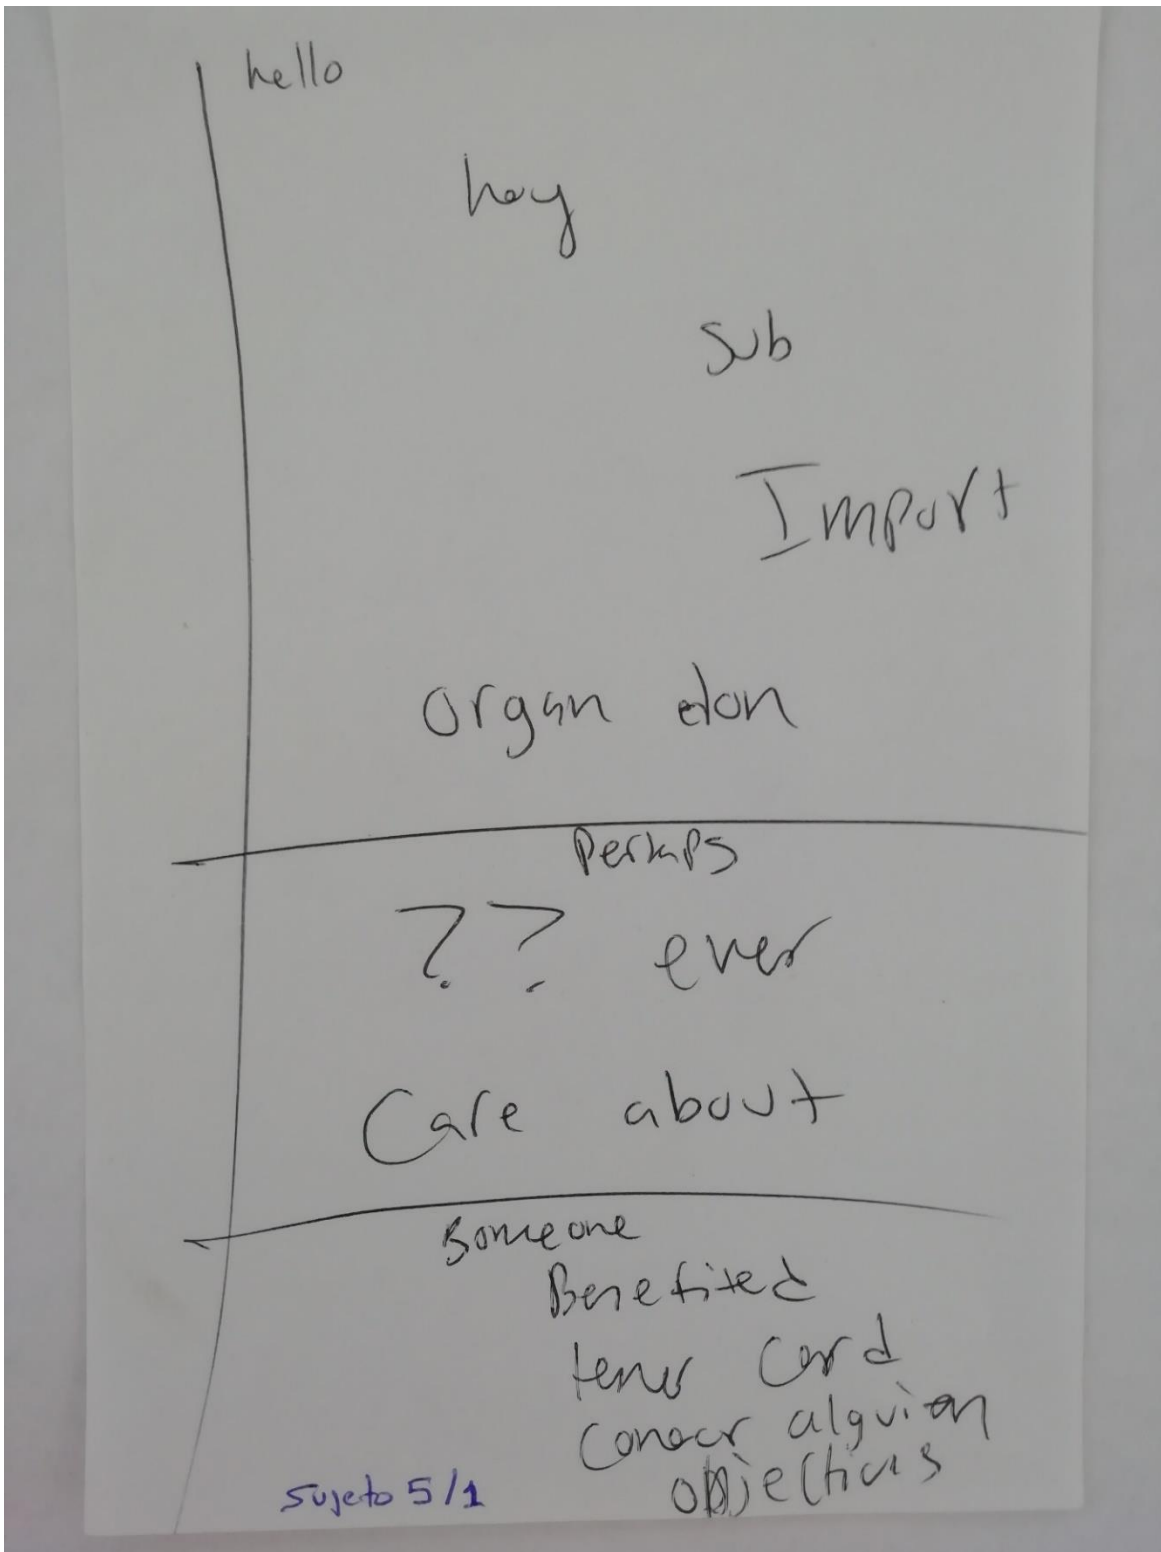 hello
hoy
sub
Import
organ don
Perhaps
?? ever
Care about
Someone
Benefited
tener Card
Conocer alguien
objectives
Sujeto 5/1